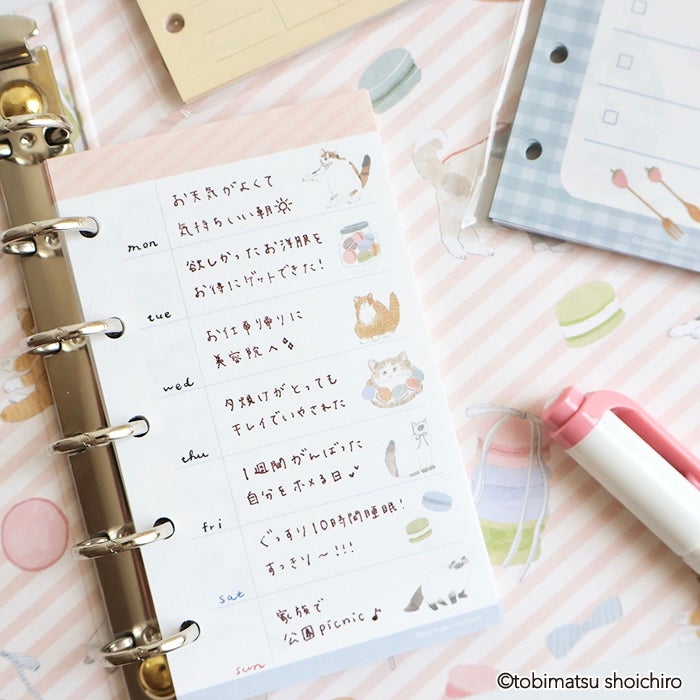 お天気がよくて
気持ちいい朝
mon
欲しかったお洋服を
お得にゲットできた!
tue
お仕事帰りに
美容院へ
wed
夕焼けがとっても
キレイでいやされた
thu
1週間がんばった
自分をホメる日
fri
ぐっすり10時間睡眠!
すっきり〜!!!
sat
家族で
公園picnic♪
sun
©tobimatsu shoichiro